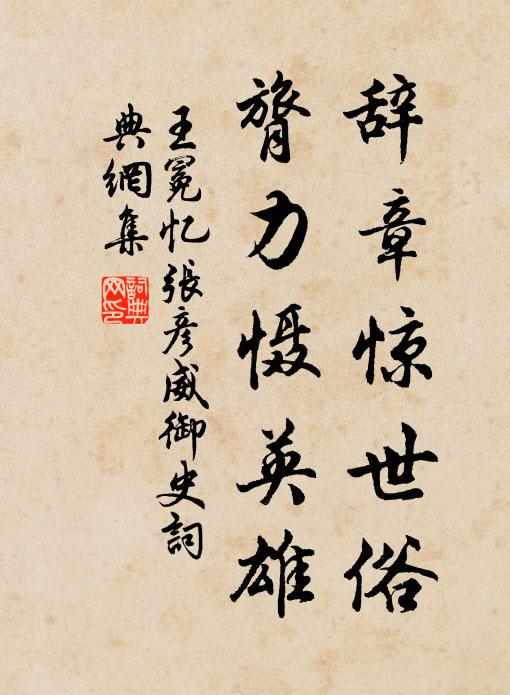 辞章惊世俗
膂力慑英雄
王冕忆張彦威御史詞
典網集
詞典网印